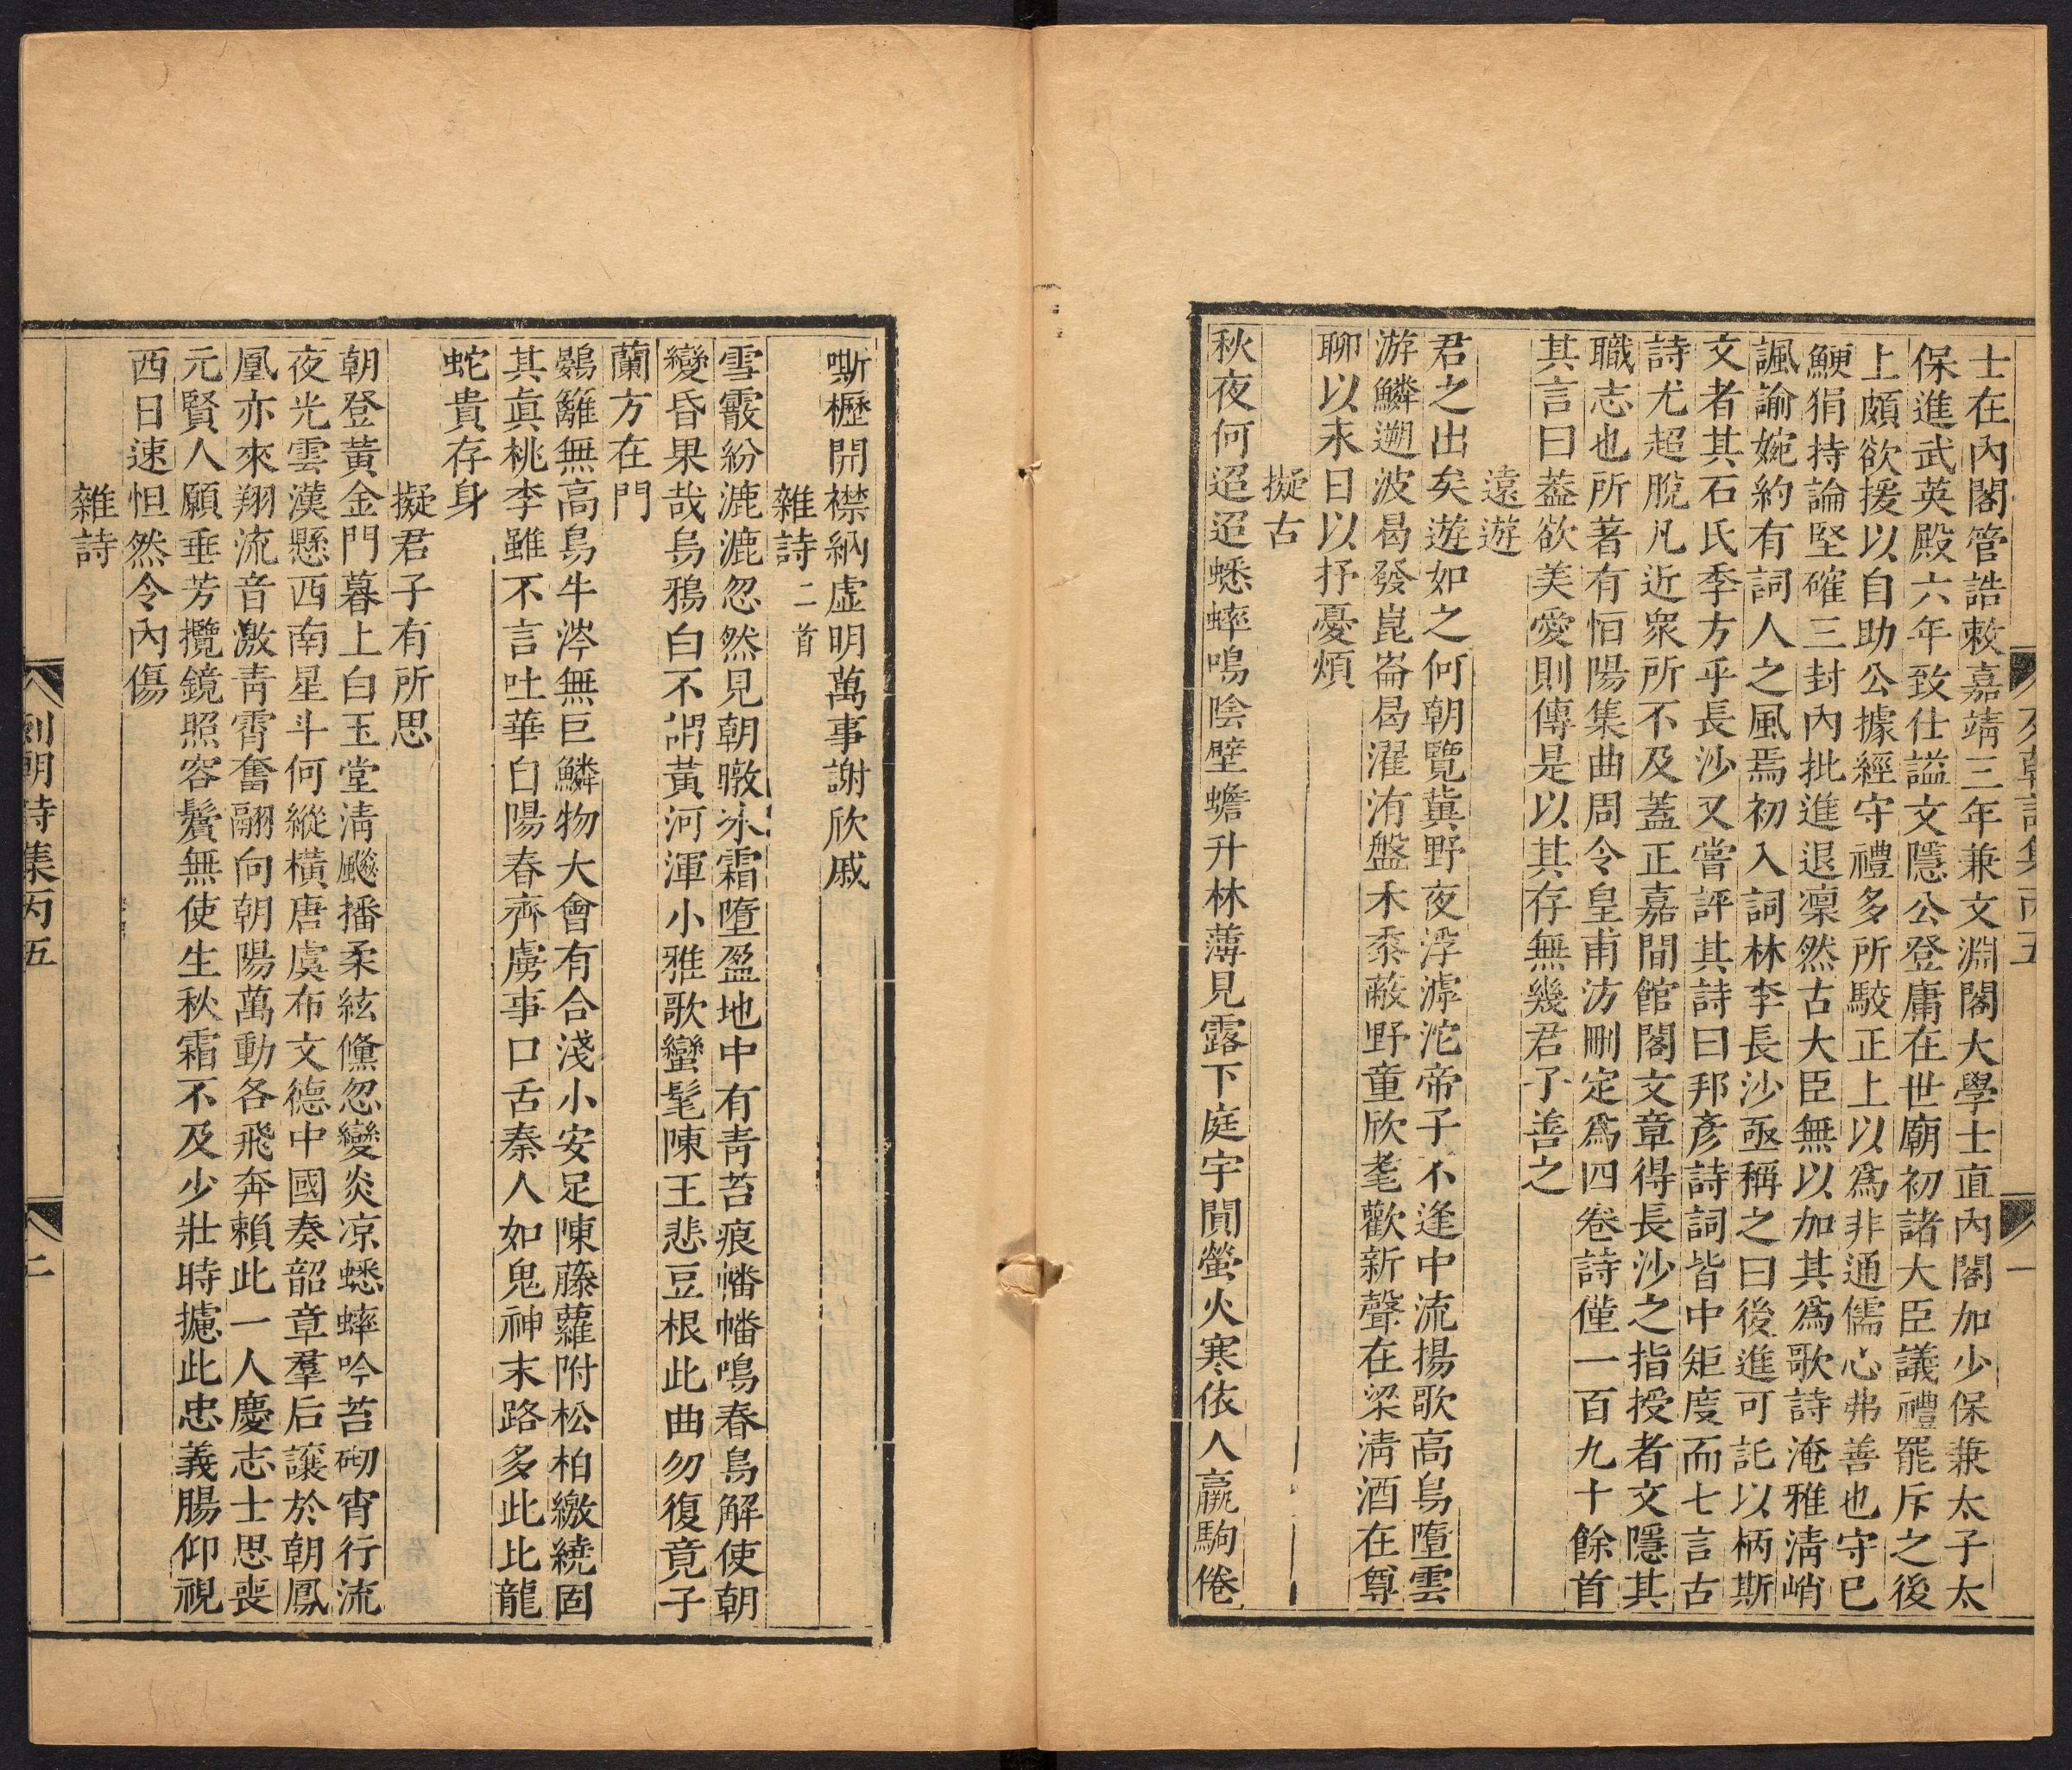 列朝詩集丙五
一
士在內閣管誥敕嘉靖三年兼文淵閣大學士直內閣加少保兼太子太
保進武英殿六年致仕謚文隱公登庸在世廟初諸大臣議禮罷斥之後
上頗欲援以自助公據經守禮多所駮正上以爲非通儒心弗善也守已
鯁狷持論堅確三封內批進退凜然古大臣無以加其爲歌詩淹雅淸峭
諷諭婉約有詞人之風焉初入詞林李長沙亟稱之曰後進可託以柄斯
文者其石氏季方乎長沙又嘗評其詩曰邦彥詩詞皆中矩度而七言古
詩尤超脫凡近衆所不及蓋正嘉間館閣文章得長沙之指授者文隱其
職志也所著有恒陽集曲周令皇甫汸刪定爲四卷詩僅一百九十餘首
其言曰葢欲美愛則傳是以其存無幾君子善之
遠遊
君之出矣遊如之何朝覽冀野夜浮滹沱帝子不逢中流揚歌高鳥墮雲
游鱗遡波曷發崑崙曷濯洧盤禾黍蔽野童欣耄歡新聲在梁淸酒在尊
聊以永日以抒憂煩
擬古
秋夜何迢迢蟋蟀鳴陰壁蟾升林薄見露下庭宇閴螢火寒依人羸駒倦
嘶櫪開襟納虛明萬事謝欣戚
雜詩二首
雪霰紛漉漉忽然見朝暾氷霜墮盈地中有靑苔痕幡幡鳴春鳥解使朝
變昏果哉烏鴉白不謂黃河渾小雅歌蠻髦陳王悲豆根此曲勿復竟子
蘭方在門
鷃籬無高鳥牛涔無巨鱗物大會有合淺小安足陳藤蘿附松柏繳繞固
其眞桃李雖不言吐華白陽春齊虜事口舌秦人如鬼神末路多此比龍
蛇貴存身
擬君子有所思
朝登黃金門暮上白玉堂淸飈播柔絃儵忽變炎凉蟋蟀吟苔砌宵行流
夜光雲漢懸西南星斗何縱橫唐虞布文德中國奏韶章羣后讓於朝鳳
凰亦來翔流音激靑霄奮翮向朝陽萬動各飛奔賴此一人慶志士思喪
元賢人願垂芳攬鏡照容鬢無使生秋霜不及少壯時攄此忠義腸仰視
西日速怛然令內傷
雜詩
列朝詩集丙五
二